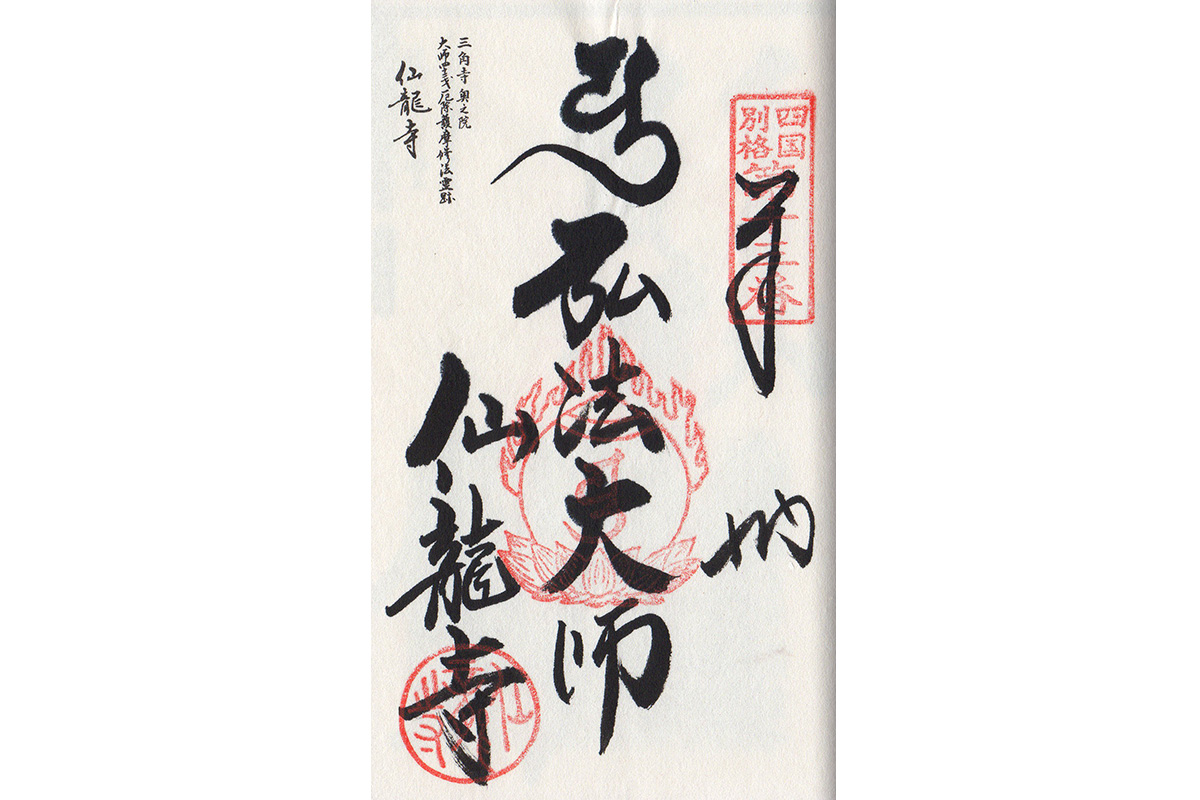 四国
別格
第十三番
奉納
弘法大師
仙龍寺
三角寺奥之院
大師四十二才厄除護摩修法霊跡
仙龍寺